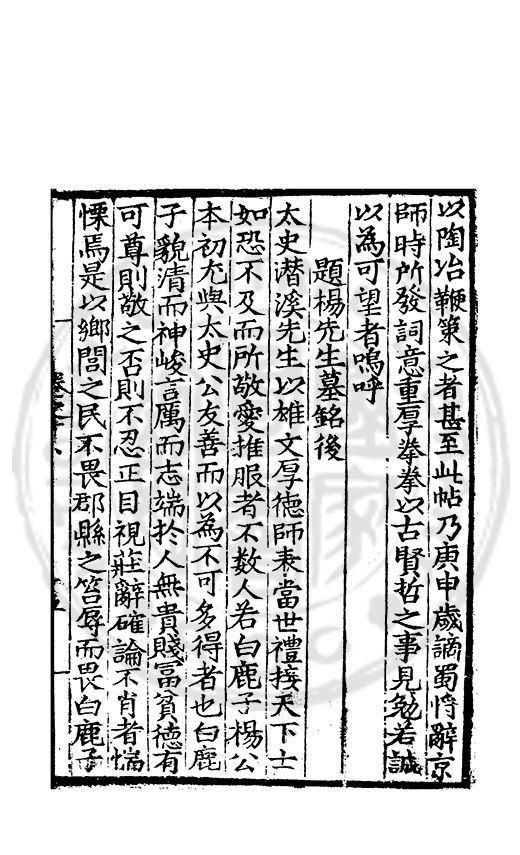 以陶冶鞭策之者甚至此帖乃庚申歲謫蜀將辭京
師時所發詞意重厚拳拳以古賢哲之事見勉若誠
以為可望者嗚呼
題楊先生墓銘後
太史潛溪先生以雄文厚德師表當世禮接天下士
如恐不及而所敬愛推服者不数人若白鹿子楊公
本初尤與太史公友善而以為不可多得者也白鹿
子貌清而神峻言厲而志端扵人無貴賤冨貧徳有
可尊則敬之否則不忍正目視莊辭確論不肖者惴
慄焉是以鄉閭之民不畏郡縣之笞辱而畏白鹿子